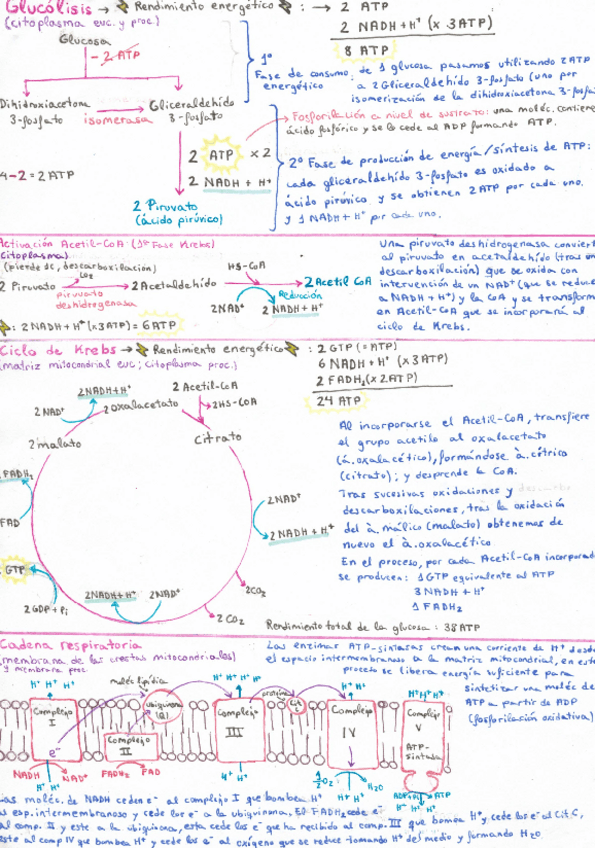 Glucólisis → Rendimiento energético : → 2 ATP
(citoplasma euc. y proc.)
2 NADH+H⁺ (x 3ATP)
8 ATP
Glucosa
- 2 ATP
1º
Fase de consumo energético
: de 1 glucosa pasamos utilizando 2ATP
a 2 Gliceraldehído 3-fosfato (uno por
isomerización de la dihidroxiacetona 3-fosfa
Dihidroxiacetona
3-fosfato
isomerasa
Gliceraldehído
3-fosfato
Fosforilación a nivel de sustrato: una moléc. contiene
ácido fosfórico y se lo cede al ADP formando ATP.
2 ATP x2
2 NADH + H⁺
4-2 = 2 ATP
2º Fase de producción de energía/síntesis de ATP:
cada gliceraldehído 3-fosfato es oxidado a
ácido pirúvico y se obtienen 2 ATP por cada uno.
y 1 NADH+H⁺ por cada uno.
2 Piruvato
(ácido pirúvico)
Activación Acetil-CoA: (1ª Fase Krebs)
(citoplasma)
(pierde 2C, descarboxilación)
CO₂
HS-CoA
2 Piruvato
piruvato
deshidrogenasa
2 Acetaldehído
2 Acetil CoA
Reducción
2NAD⁺
2 NADH + H⁺
: 2 NADH+H⁺(x3ATP) = 6 ATP
Una piruvato deshidrogenasa conviert
al piruvato en acetaldehído (tras un
descarboxilación) que se oxida con
intervención de un NAD⁺ (que se reduce
a NADH+H⁺) y la CoA y se transform
en Acetil-CoA que se incorporará al
ciclo de Krebs.
Ciclo de Krebs → Rendimiento energético : 2 GTP (=ATP)
(matriz mitocondrial euc; citoplasma proc.)
6 NADH + H⁺ (x3ATP)
2 FADH₂ (x2ATP)
24 ATP
2 NADH+H⁺
2 NAD⁺
2 Acetil-CoA
2 oxalacetato
2HS-COA
2 malato
Citrato
FADH₂
FAD
2 NAD⁺
2 NADH + H⁺
GTP
2 GDP + Pi
2NADH+H⁺
2NAD⁺
2CO₂
2 CO₂
Al incorporarse el Acetil-CoA, transfiere
el grupo acetilo al oxalacetato
(á.oxalacético), formándose á.cítrico
(citrato); y desprende la CoA.
Tras sucesivas oxidaciones y
descarboxilaciones, tras la oxidación
del á. málico (malato) obtenemos de
nuevo el á.oxalacético.
En el proceso, por cada Acetil-CoA incorporad
se producen: 1GTP equivalente al ATP
3 NADH + H⁺
1 FADH₂
Rendimiento total de la glucosa: 38 ATP
Cadena respiratoria
(membrana de las crestas mitocondriales)
y membrana proc.
Las enzimas ATP-sintasas crean una corriente de H⁺ desde
el espacio intermembranoso a la matriz mitocondrial, en este
proceso se libera energía suficiente para
sintetizar una moléc de
ATP a partir de ADP
(fosforilación oxidativa)
H⁺ H⁺ H⁺
moléc lipídica
H⁺ H⁺ H⁺ H⁺
proteína
H⁺ H⁺
H⁺ H⁺ H⁺
Complejo
I
e⁻
ubiquinona
(Q)
Complejo
II
Complejo
III
Cit
c
Complejo
IV
Complejo
V
ATP-
sintasa
NADH
NAD⁺
H⁺ H⁺
FADH₂
FAD
4 H⁺
½O₂
H₂O
H⁺ H⁺
ADP+Pi
ATP
H⁺ H⁺ H⁺
Las moléc. de NADH ceden e⁻ al complejo I que bombea H⁺
al esp.intermembranoso y cede los e⁻ a la ubiquinona. El FADH₂ cede e⁻
al comp. II y este a la ubiquinona, esta cede los e⁻ que ha recibido al comp. III que bombea H⁺ y cede los e⁻ al Cit.C,
este al comp IV que bombea H⁺ y cede los e⁻ al oxígeno que se reduce tomando H⁺ del medio y formando H₂O